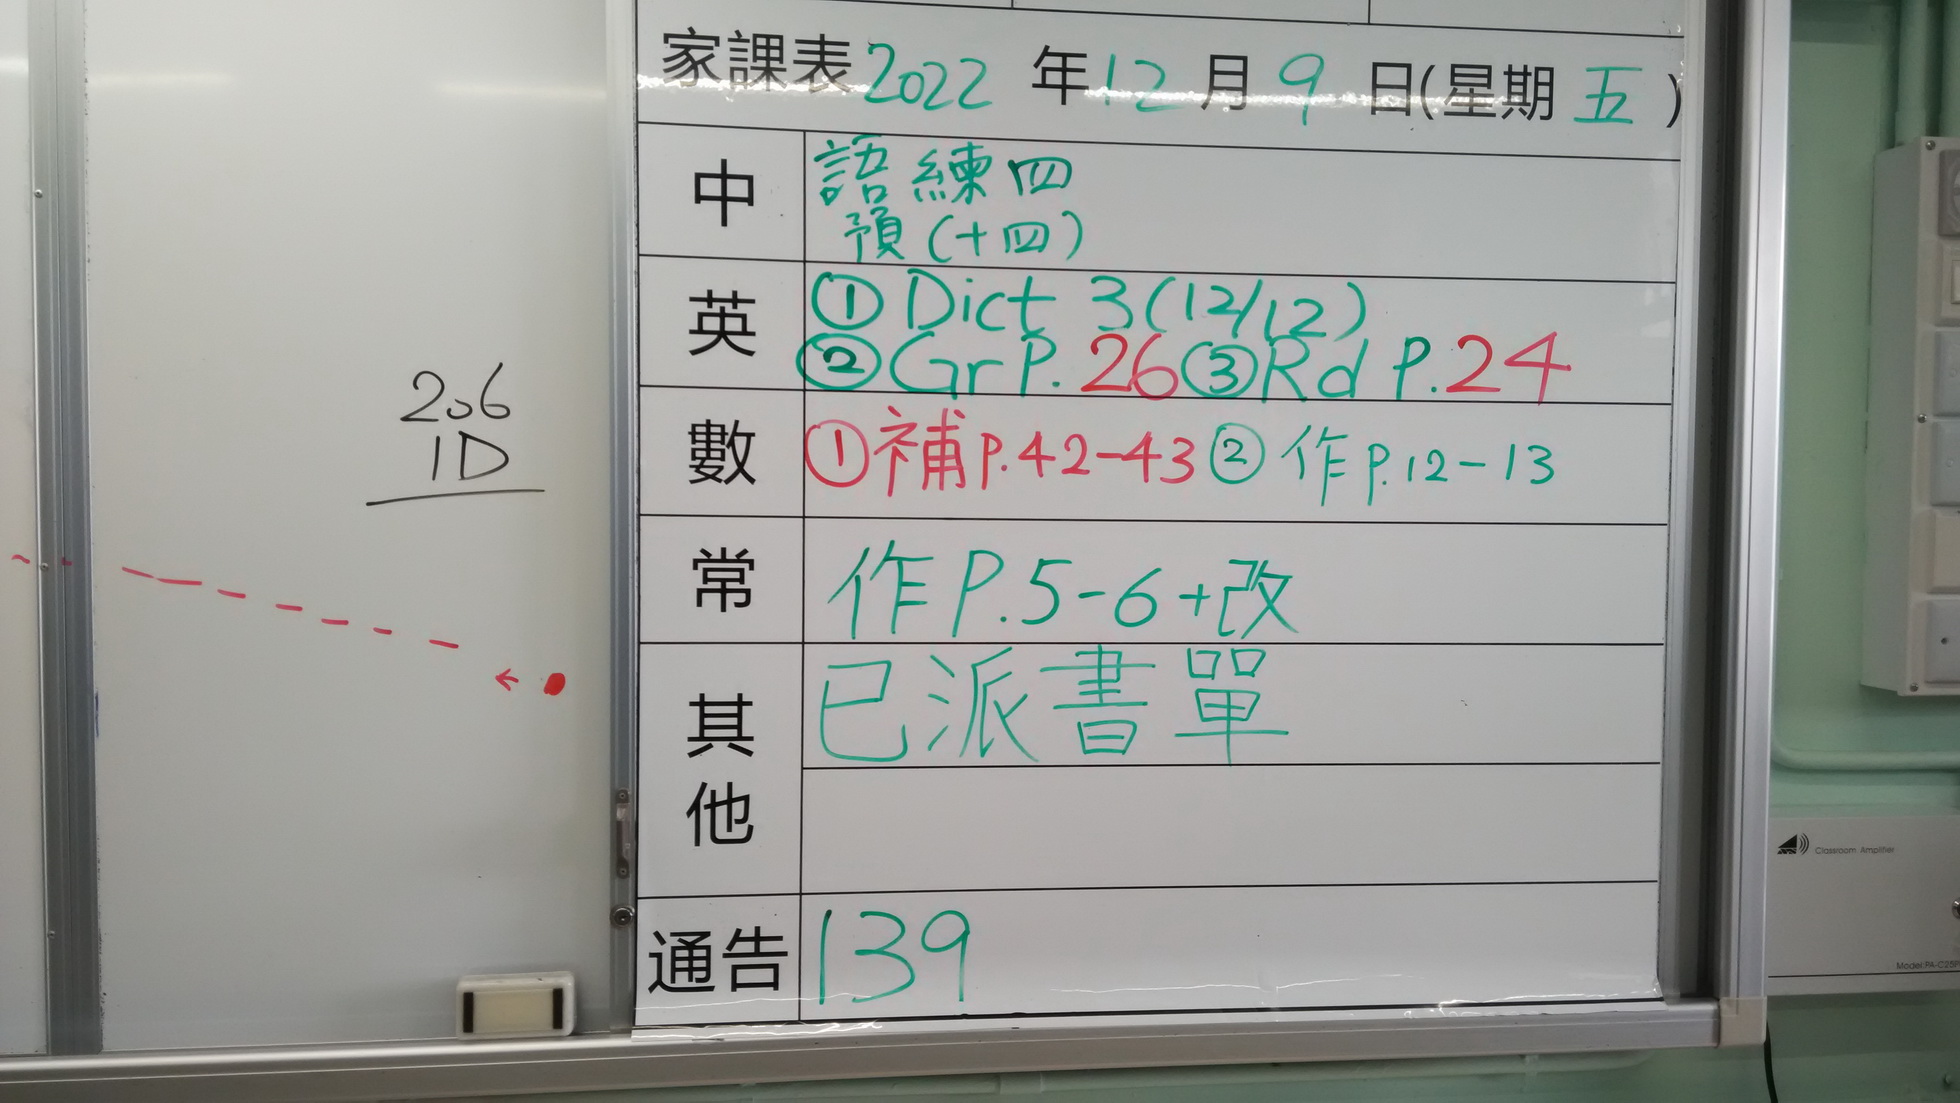 206
1D
家課表 2022 年 12 月 9 日(星期 五 )
中
語練四
預(十四)
英
① Dict 3 (12/12)
② Gr P. 26 ③ Rd P. 24
數
① 補 P.42-43 ② 作 P.12-13
常
作 P.5-6+改
其他
已派書單
通告
139
Classroom Amplifier